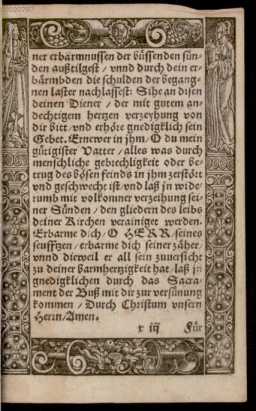 ner erbärmnussen der büssenden sün-
den außtilgest / vnnd durch dein er-
bärmbden die schulden der begang-
nen laster nachlassest: Sihe an disen
deinen Diener / der mit gutem an-
dechtigem hertzen verzeyhung von
dir bitt / vnd erhöre gnediglich sein
Gebet. Ernewer in jhm / O du mein
gütigister Vatter / alles was durch
menschliche gebrechligkeit oder be-
trug des bösen feinds in jhm zerstört
vnd geschwecht ist / vnd laß jn wide-
rumb mit volkomner verzeihung sei-
ner Sünden / den gliedern des leibs
deiner Kirchen verainiget werden.
Erbarme dich / O HERR / seines
seufftzen / erbarme dich seiner zäher /
vnnd dieweil er all sein zuuersicht
zu deiner barmhertzigkeit hat / laß jn
gnedigklichen durch das Sacra-
ment der Buß mit dir zur versünung
kommen / Durch Christum vnsern
Herrn / Amen.
x iij Für